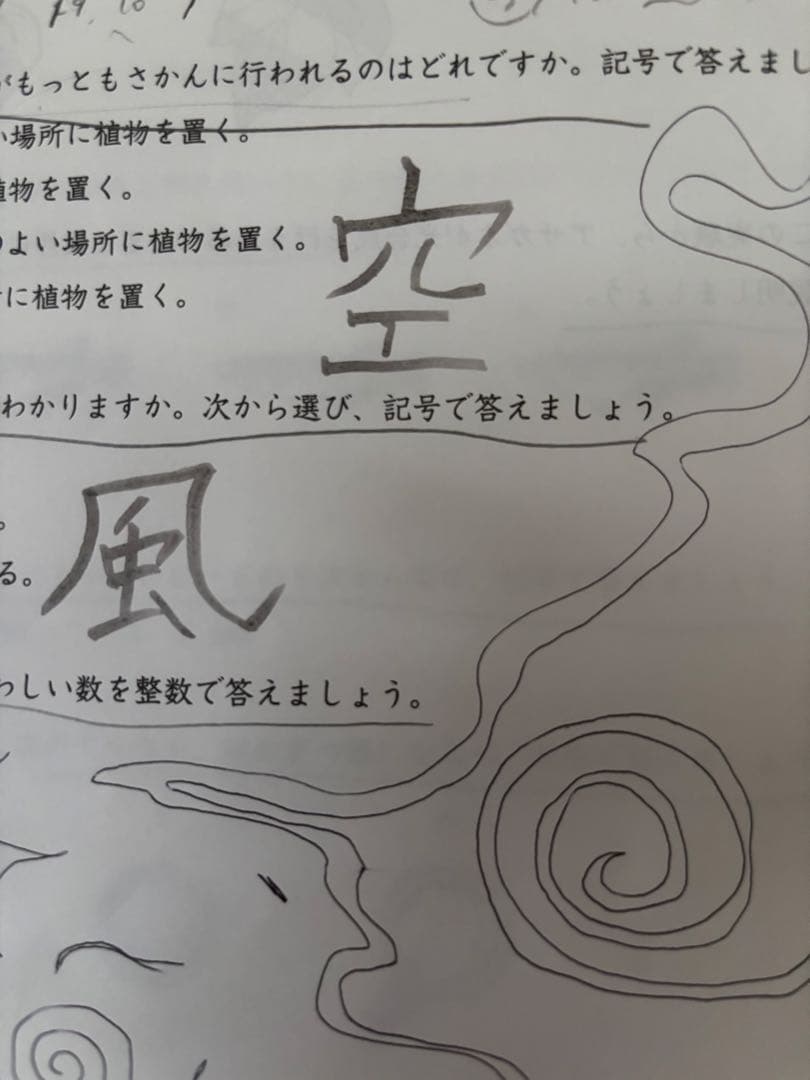 がもっともさかんに行われるのはどれですか。記号で答えまし
い場所に植物を置く。
植物を置く。
のよい場所に植物を置く。
に植物を置く。
空
わかりますか。次から選び、記号で答えましょう。
風
る。
わしい数を整数で答えましょう。